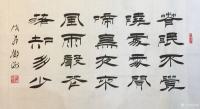 春眠不覺
曉處處聞
啼鳥夜來
風雨聲花
落知多少